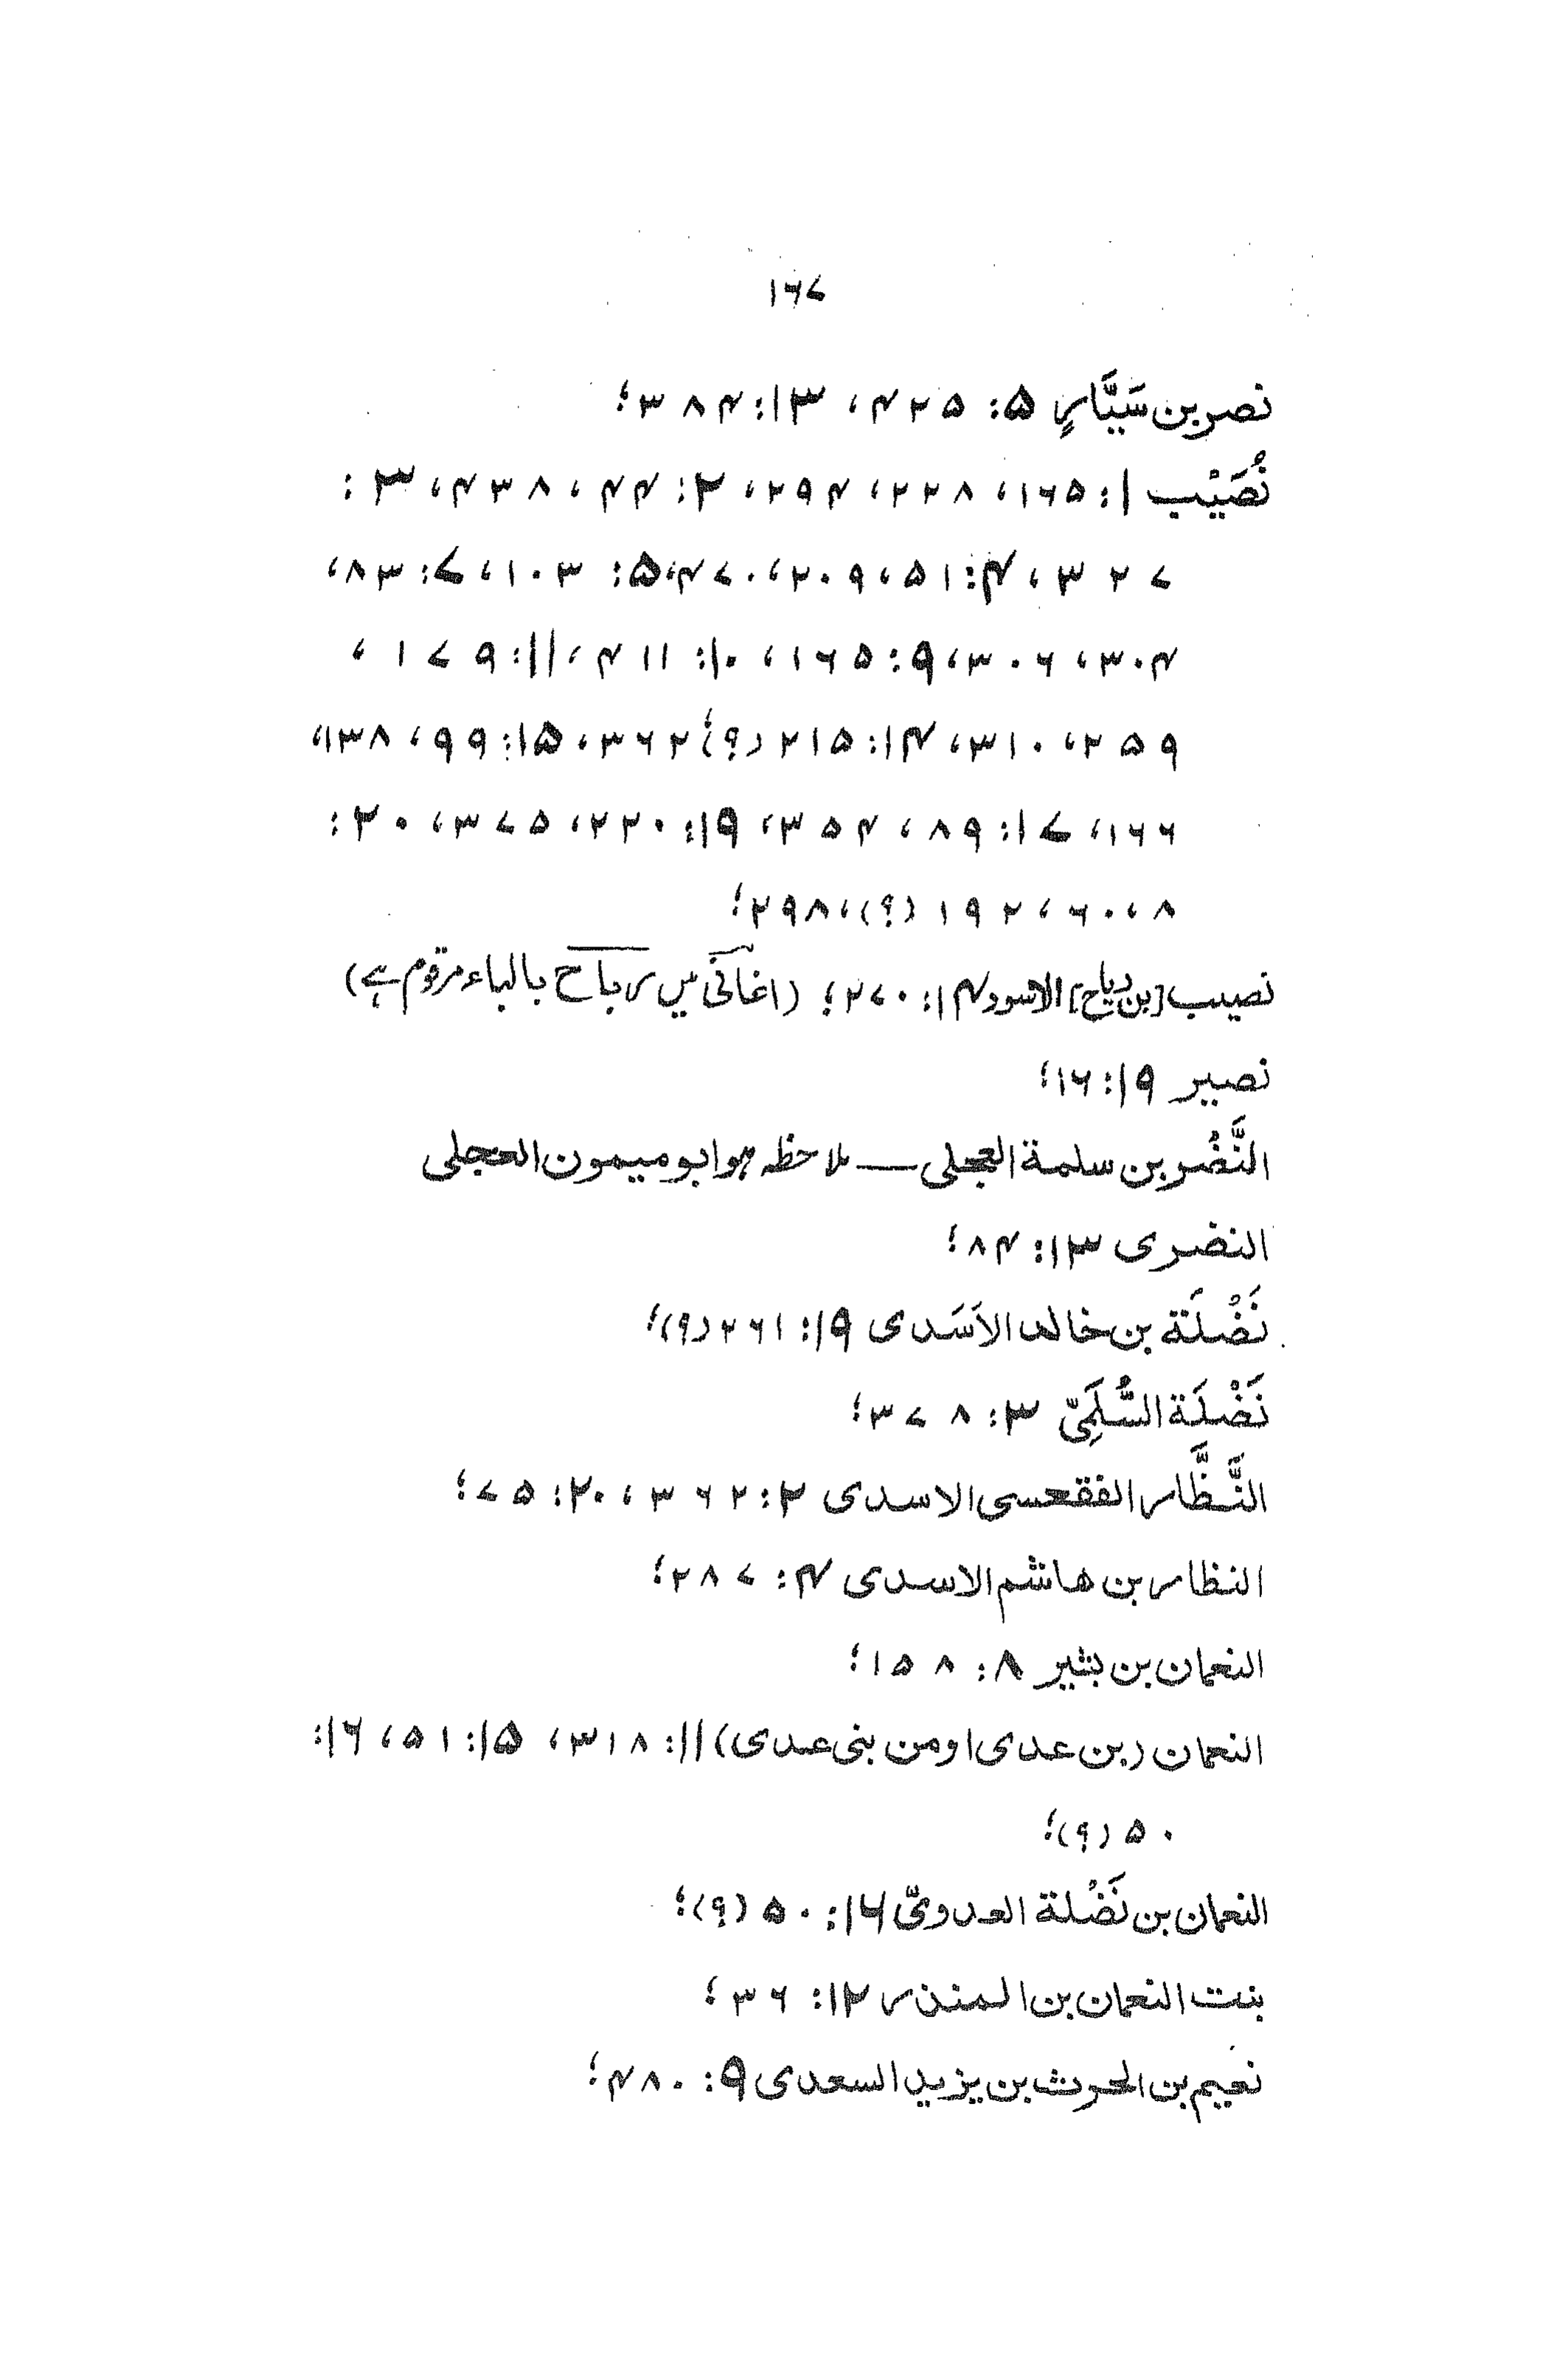 ۱۶۷
نصر بن سَیَّارٍ ۵: ۴۲۵، ۱۳: ۳۸۴؛
نُصَیْب ۱: ۱۶۵، ۲۲۸، ۲۹۴، ۲: ۴۴، ۴۳۸، ۳:
۳۲۷، ۴: ۵۱، ۲۰۹، ۴۷۰، ۵: ۱۰۳، ۷: ۸۳،
۳۰۴، ۳۰۶، ۹: ۱۶۵، ۱۰: ۴۱۱، ۱۱: ۱۷۹،
۲۵۹، ۳۱۰، ۱۴: ۲۱۵ (؟)؛ ۳۶۲، ۱۵: ۹۹، ۱۳۸،
۱۶۶، ۱۷: ۸۹، ۳۵۴، ۱۹: ۲۲۰، ۳۷۵، ۲۰:
۸، ۶۰، ۱۹۲ (؟)، ۲۹۸؛
نصیب [بن ریاح] الاسود ۱۴: ۲۷۰؛ (اغانی میں رباح بالباء مرقوم ہے)
نصیر ۱۹: ۱۶؛
النَّضْر بن سلمة العجلی — ملاحظہ ہو ابو میمون العجلی
النضری ۱۳: ۸۴؛
نَضْلَة بن خالد الاَسَدی ۱۹: ۲۶۱ (؟)؛
نَضْلَة السُّلَمِیّ ۳: ۳۷۸؛
النَّظَّار الفقعسی الاسدی ۲: ۳۶۲، ۲۰: ۷۵؛
النظار بن هاشم الاسدی ۴: ۲۸۷؛
النعمان بن بشیر ۸: ۱۵۸؛
النعمان (بن عدی او من بنی عدی) ۱۱: ۳۱۸، ۱۵: ۵۱، ۱۶:
۵۰ (؟)؛
النعمان بن نَضْلة العدویّ ۱۶: ۵۰ (؟)؛
بنت النعمان بن المنذر ۱۲: ۳۶؛
نعیم بن الحرث بن یزید السعدی ۹: ۴۸۰؛